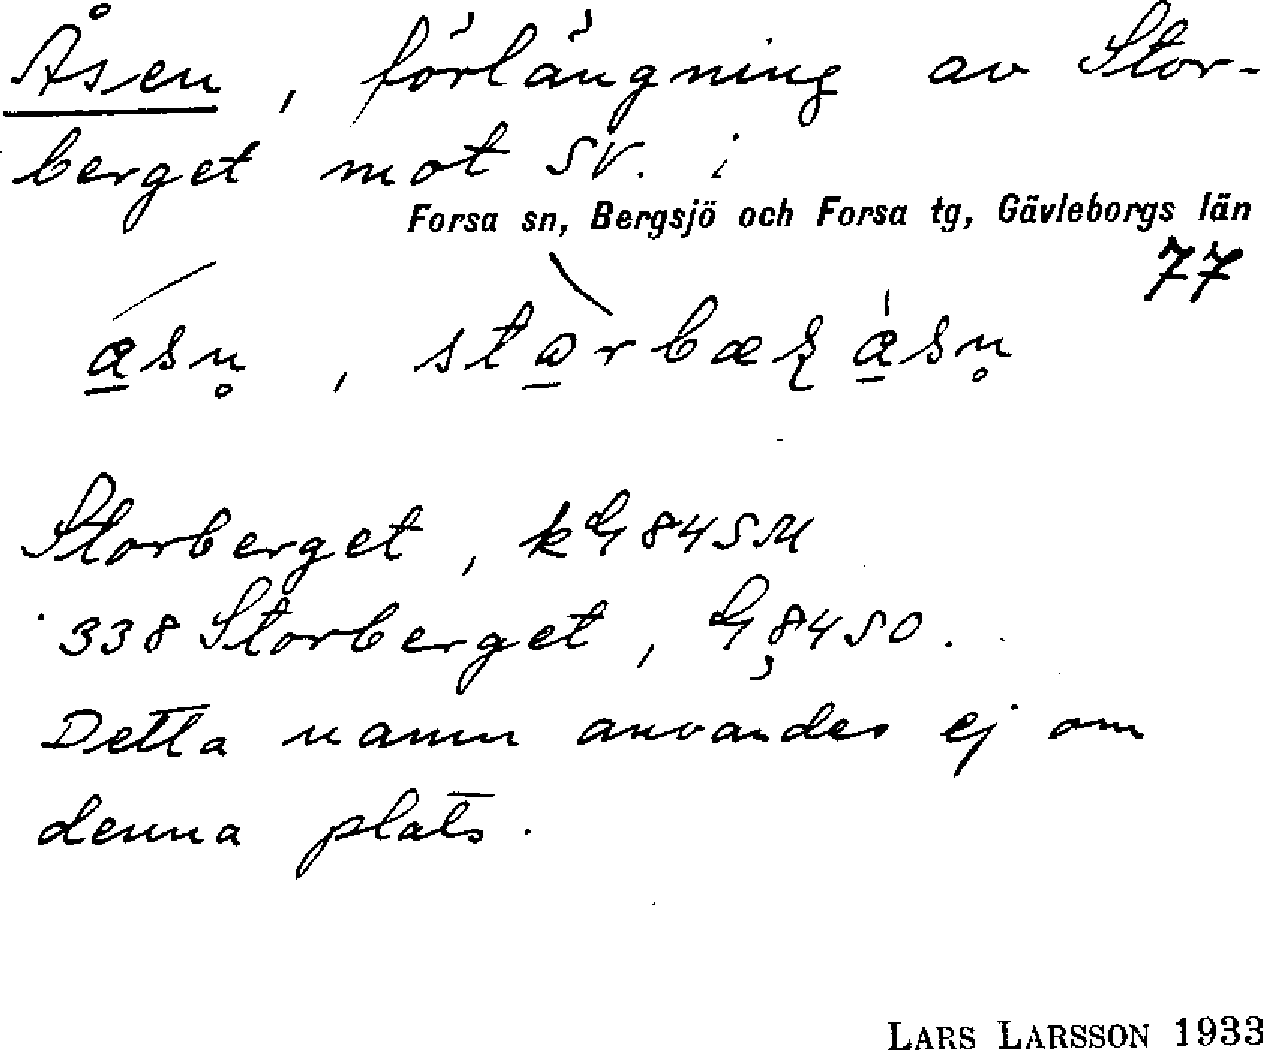 Åsen, förlängning av Stor-
berget mot SV. i
Forsa sn, Bergsjö och Forsa tg, Gävleborgs län
77
Storberget, kG 84 SM
338 Storberget, G, 84 SO.
Detta namn användes ej om
denna plats.
LARS LARSSON 1933